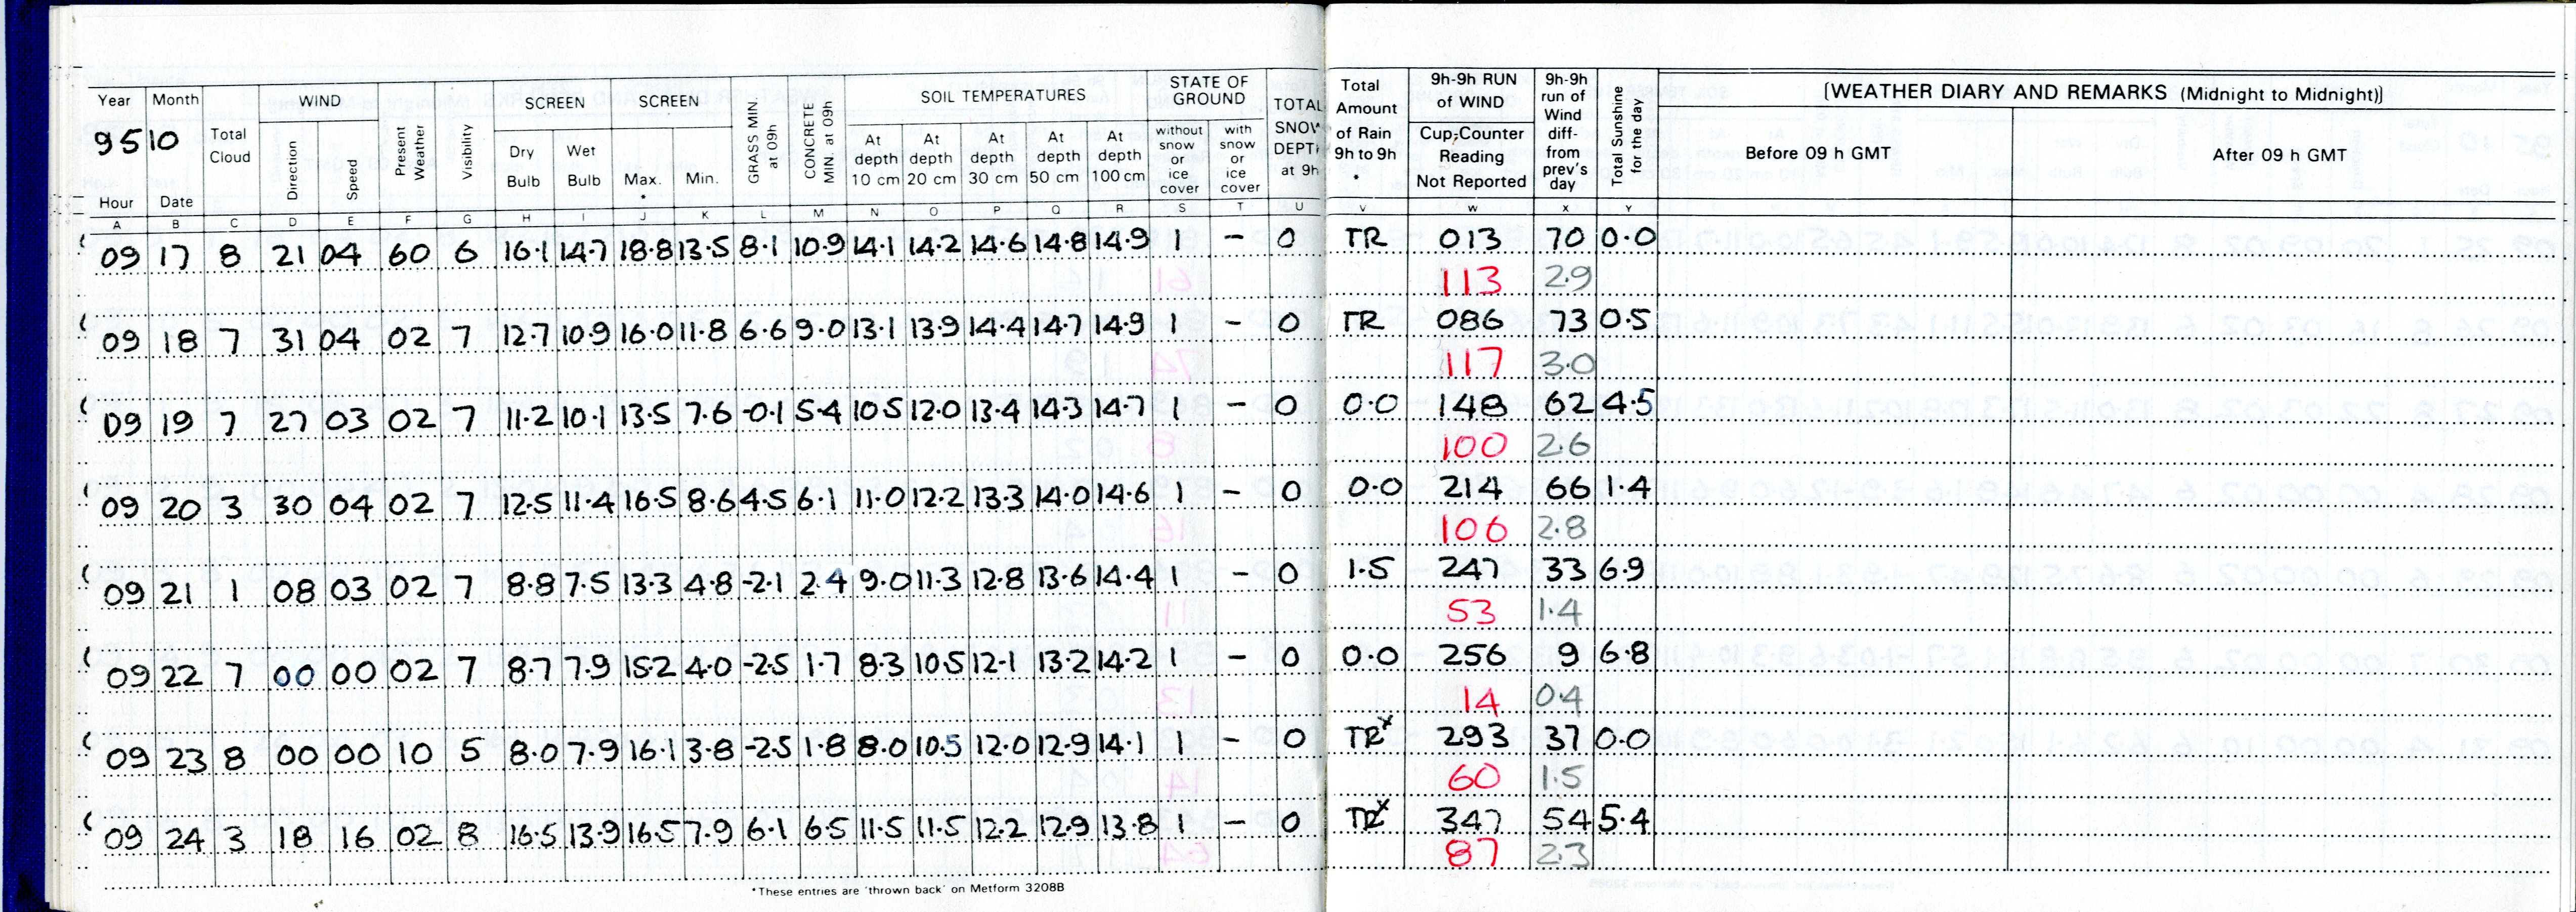 Year Month WIND SCREEN SCREEN GRASS MIN. at 09h CONCRETE MIN. at 09h SOIL TEMPERATURES STATE OF GROUND TOTAL SNOW DEPTH at 9h Total Amount of Rain 9h to 9h * 9h-9h RUN of WIND 9h-9h run of Wind diff- from prev's day Total Sunshine for the day [WEATHER DIARY AND REMARKS (Midnight to Midnight)]
95 10 Total Cloud Direction Speed Present Weather Visibility Dry Bulb Wet Bulb Max. * Min. At depth 10 cm At depth 20 cm At depth 30 cm At depth 50 cm At depth 100 cm without snow or ice cover with snow or ice cover Cup-Counter Reading Not Reported Before 09 h GMT After 09 h GMT
Hour Date
A B C D E F G H I J K L M N O P Q R S T U V W X Y
09 17 8 21 04 60 6 16.1 14.7 18.8 13.5 8.1 10.9 14.1 14.2 14.6 14.8 14.9 1 – 0 TR 013 70 0.0
113 2.9
09 18 7 31 04 02 7 12.7 10.9 16.0 11.8 6.6 9.0 13.1 13.9 14.4 14.7 14.9 1 – 0 TR 086 73 0.5
117 3.0
09 19 7 27 03 02 7 11.2 10.1 13.5 7.6 -0.1 5.4 10.5 12.0 13.4 14.3 14.7 1 – 0 0.0 148 62 4.5
100 2.6
09 20 3 30 04 02 7 12.5 11.4 16.5 8.6 4.5 6.1 11.0 12.2 13.3 14.0 14.6 1 – 0 0.0 214 66 1.4
106 2.8
09 21 1 08 03 02 7 8.8 7.5 13.3 4.8 -2.1 2.4 9.0 11.3 12.8 13.6 14.4 1 – 0 1.5 247 33 6.9
53 1.4
09 22 7 00 00 02 7 8.7 7.9 15.2 4.0 -2.5 1.7 8.3 10.5 12.1 13.2 14.2 1 – 0 0.0 256 9 6.8
14 0.4
09 23 8 00 00 10 5 8.0 7.9 16.1 3.8 -2.5 1.8 8.0 10.5 12.0 12.9 14.1 1 – 0 TR x 293 37 0.0
60 1.5
09 24 3 18 16 02 8 16.5 13.9 16.5 7.9 6.1 6.5 11.5 11.5 12.2 12.9 13.8 1 – 0 TR x 347 54 5.4
87 2.3
*These entries are 'thrown back' on Metform 3208B